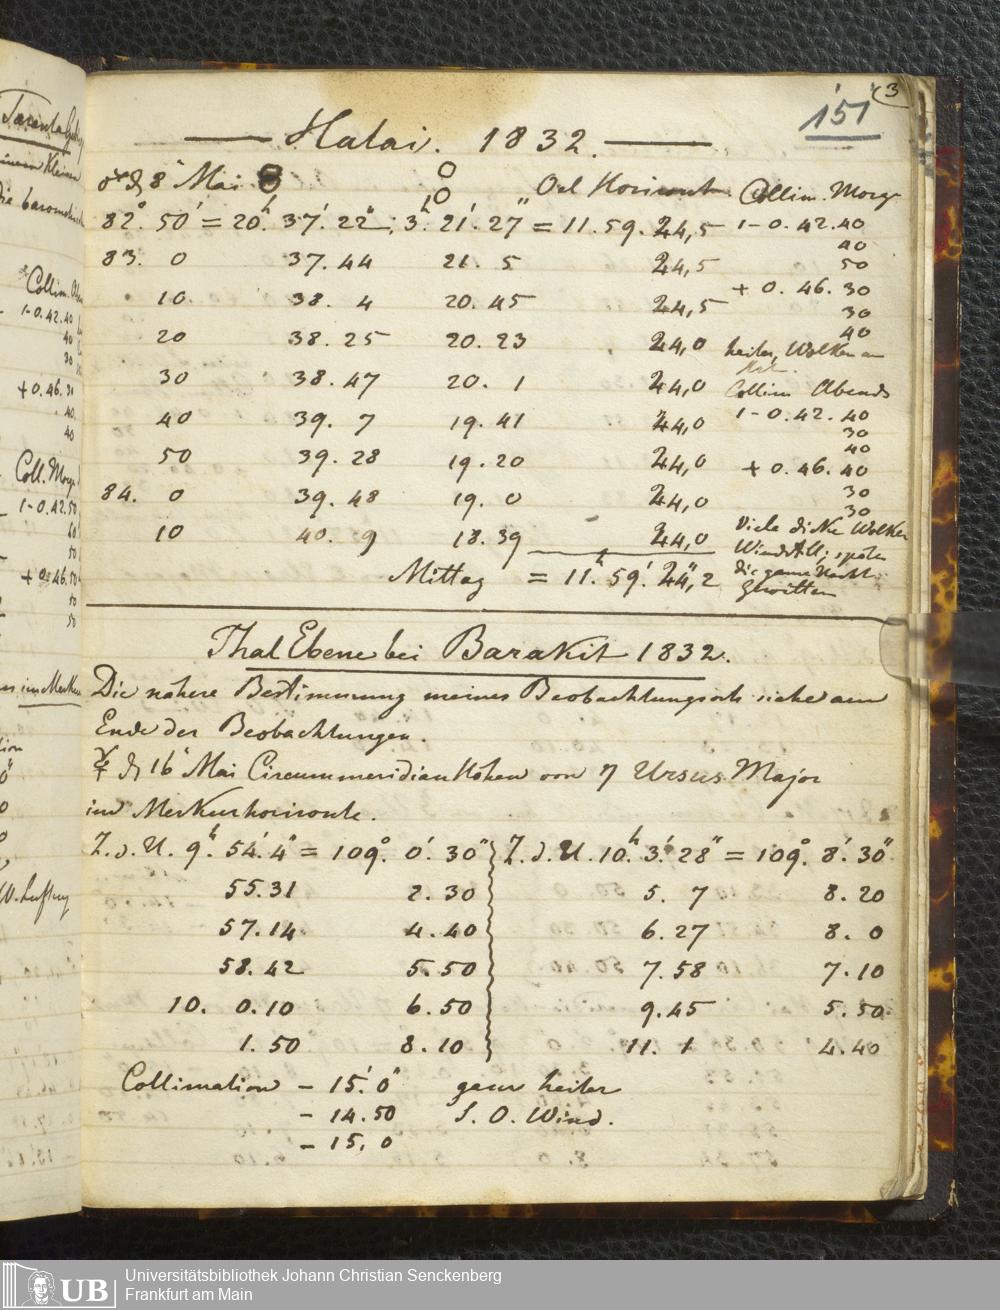 151
3
Halai. 1832.
8n Mai
Oel Horizont
Collim. Morgs
82° 50' = 20h. 37'. 22" ; 3h. 21'. 27" = 11. 59. 24,5
1 - 0. 42. 40
40
83. 0 37. 44 21. 5 24,5
50
+ 0. 46. 30
10 38. 4 20. 45 24,5
30
40
20 38. 25 20. 23 24,0
heiter, Wolken am
30 38. 47 20. 1 24,0
Collim Abends
1 - 0. 42. 40
40 39. 7 19. 41 24,0
30
40
50 39. 28 19. 20 24,0
+ 0. 46. 40
84. 0 39. 48 19. 0 24,0
30
30
10 40. 9 18. 39 24,0
Viele dicke Wolken
Windstill; später
Mittag = 11h. 59'. 24",2
die ganze Nacht
Gewitter
Thal Ebene bei Barakit 1832.
Die nähere Bestimmung meines Beobachtungsorts siehe am
Ende der Beobachtungen.
☿ d 16n Mai Circummeridian Höhen von η Ursus Major
im Merkurhorizonte.
Z. d. U. 9h. 54'. 4" = 109°. 0'. 30" Z. d. U. 10h. 3'. 28" = 109°. 8'. 30"
55. 31 2. 30 5. 7 8. 20
57. 14 4. 40 6. 27 8. 0
58. 42 5. 50 7. 58 7. 10
10. 0. 10 6. 50 9. 45 5. 50
1. 50 8. 10 11. 1 4. 40
Collimation - 15'. 0" ganz heiter
- 14. 50 S. O. Wind.
- 15. 0
Collim. 
1 - 0. 42. 40
40
30
+ 0. 46. 30
40
40
Coll. Morgs
1 - 0. 42. 50
60
50
+ 0. 46. 50
50
50
UB
Universitätsbibliothek Johann Christian Senckenberg
Frankfurt am Main